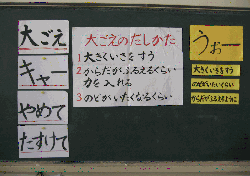 大ごえ
キャー
やめて
たすけて
大ごえのだしかた
1 大きくいきをすう
2 からだがふるえるくらい
力を入れる
3 のどがいたくなるくらい
うおー
大きくいきをすう
のどがいたいくらい
からだがふるえるように